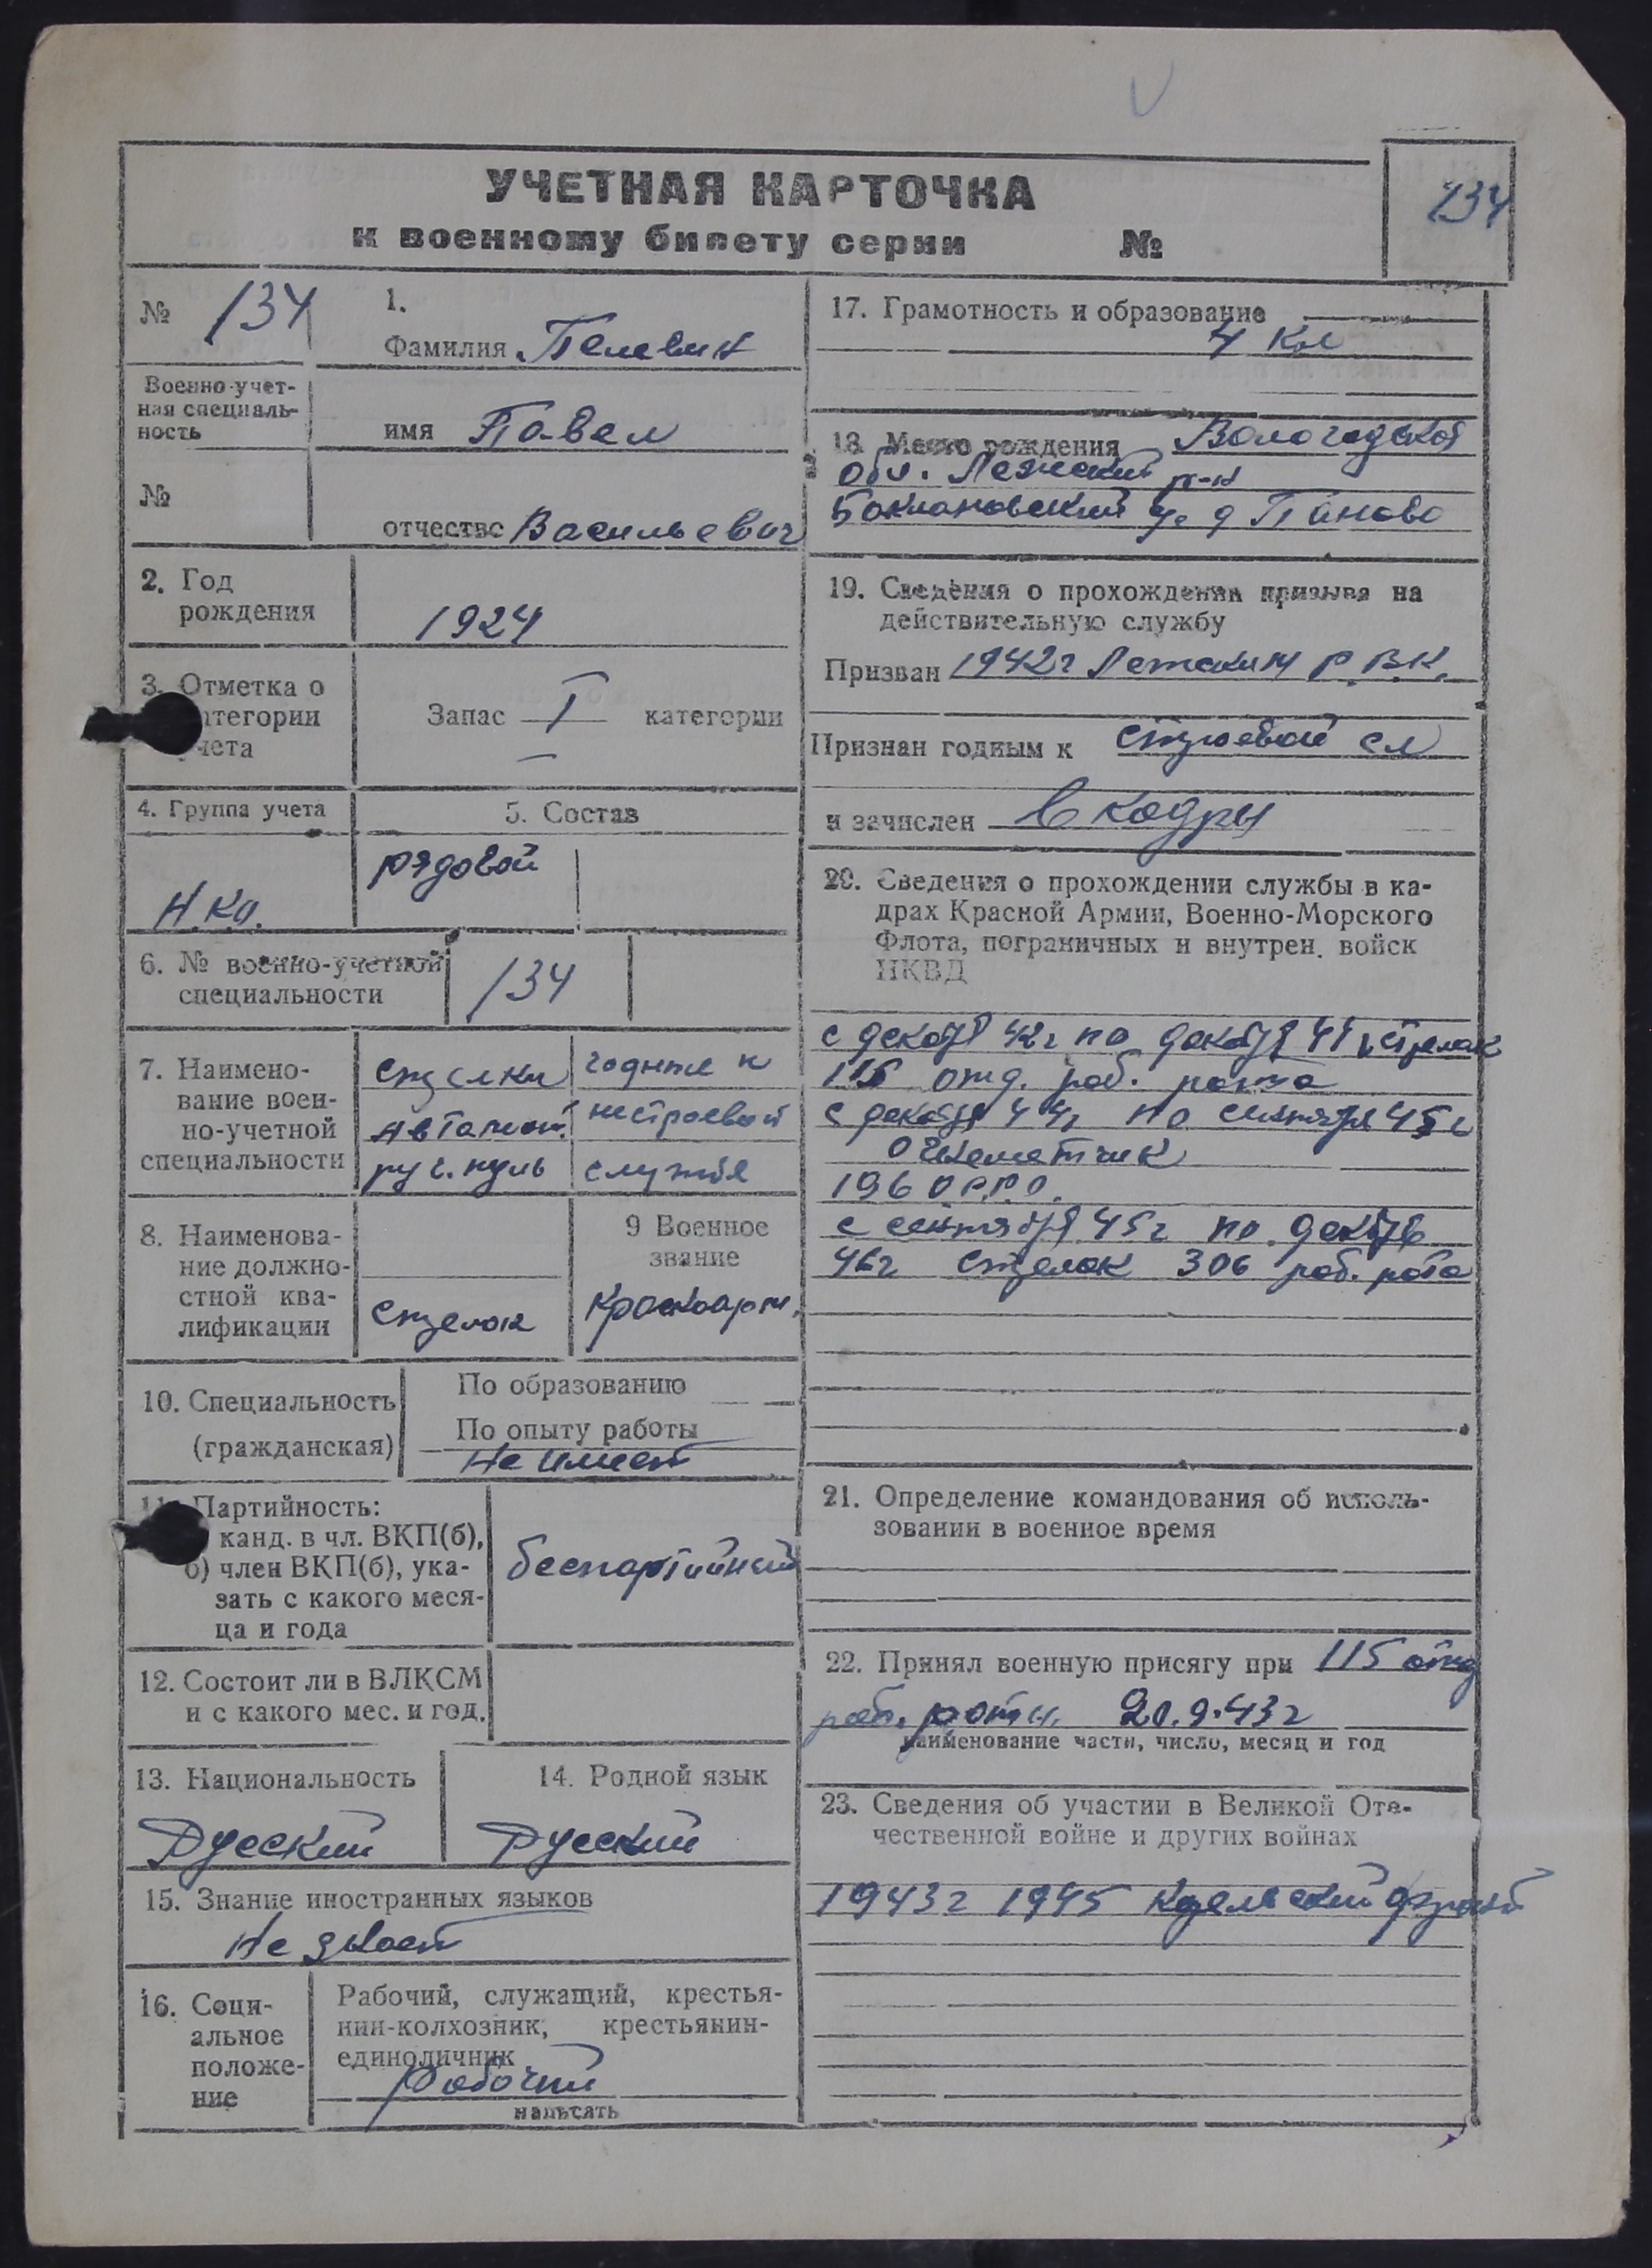 УЧЕТНАЯ КАРТОЧКА
к военному билету серии №
134
№ 134
1.
Фамилия Пелевин
Военно-учет-
ная специаль-
ность
имя Павел
№
отчество Васильевич
2. Год
рождения
1924
3. Отметка о
атегории
чета
Запас I категории
4. Группа учета
5. Состав
Н.К.О.
рядовой
6. № военно-учетной
специальности
134
7. Наимено-
вание воен-
но-учетной
специальности
стрелки
автомат.
руч. пуль
годные к
нестроевой
службе
8. Наименова-
ние должно-
стной ква-
лификации
стрелок
9 Военное
звание
красноарм.
10. Специальность
(гражданская)
По образованию
По опыту работы
Не имеет
11. Партийность:
канд. в чл. ВКП(б),
б) член ВКП(б), ука-
зать с какого меся-
ца и года
беспартийный
12. Состоит ли в ВЛКСМ
и с какого мес. и год.
13. Национальность
Русский
14. Родной язык
Русский
15. Знание иностранных языков
Не знает
16. Соци-
альное
положе-
ние
Рабочий, служащий, крестья-
нин-колхозник, крестьянин-
единоличник
Рабочий
написать
17. Грамотность и образование
4 кл
18. Место рождения Вологодской
обл. Лежский р-н
Бакланавский д Паново
19. Сведения о прохождении призыва на
действительную службу
Призван 1942г Лежским Р.В.К.
Признан годным к строевой сл
и зачислен в кадры
20. Сведения о прохождении службы в ка-
драх Красной Армии, Военно-Морского
Флота, пограничных и внутрен. войск
НКВД
с декабря 42г по декабря 44 г стрелок
115 отд. раб. рота
с декабря 44г по сентября 45г
огнеметчик
196 О.Р.Р.О.
с сентября 45г по декабрь
46г стрелок 306 раб. рота
21. Определение командования об исполь-
зовании в военное время
22. Принял военную присягу при 115 отд
раб. роты. 20.9.43г
наименование части, число, месяц и год
23. Сведения об участии в Великой Оте-
чественной войне и других войнах
1943г 1945 Карельский фронт